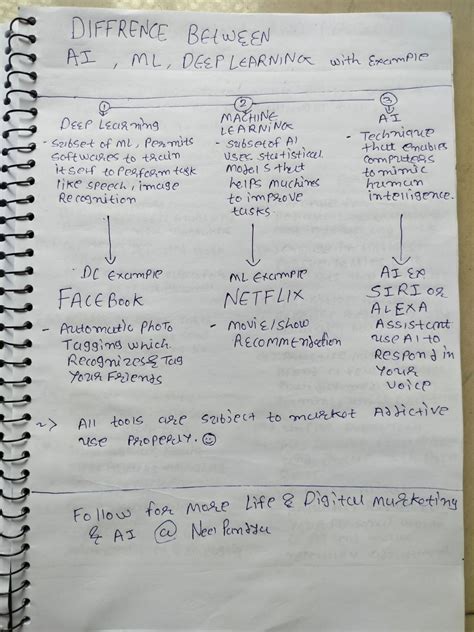 DIFFRENCE BETWEEN
AI, ML, DEEP LEARNING with Example
1
DEEP LEARNING
- subset of ML, Permits
softwares to train
itself to perform task
like speech, image
Recognition
DL Example
FACEBOOK
- Automatic Photo
Tagging which
Recognizes & Tag
Your Friends
2
MACHINE
LEARNING
- subset of AI
uses statistical
models that
helps machines
to improve
tasks.
ML Example
NETFLIX
- Movie/show
Recommendation
3
AI
- Technique
that enables
computers
to mimic
human
intelligence.
AI EX
SIRI or
ALEXA
Assistant
use AI to
Respond in
Your
Voice
~> All tools are subject to market Addictive
use properly. ☺
Follow for more Life & Digital Marketing
& AI @